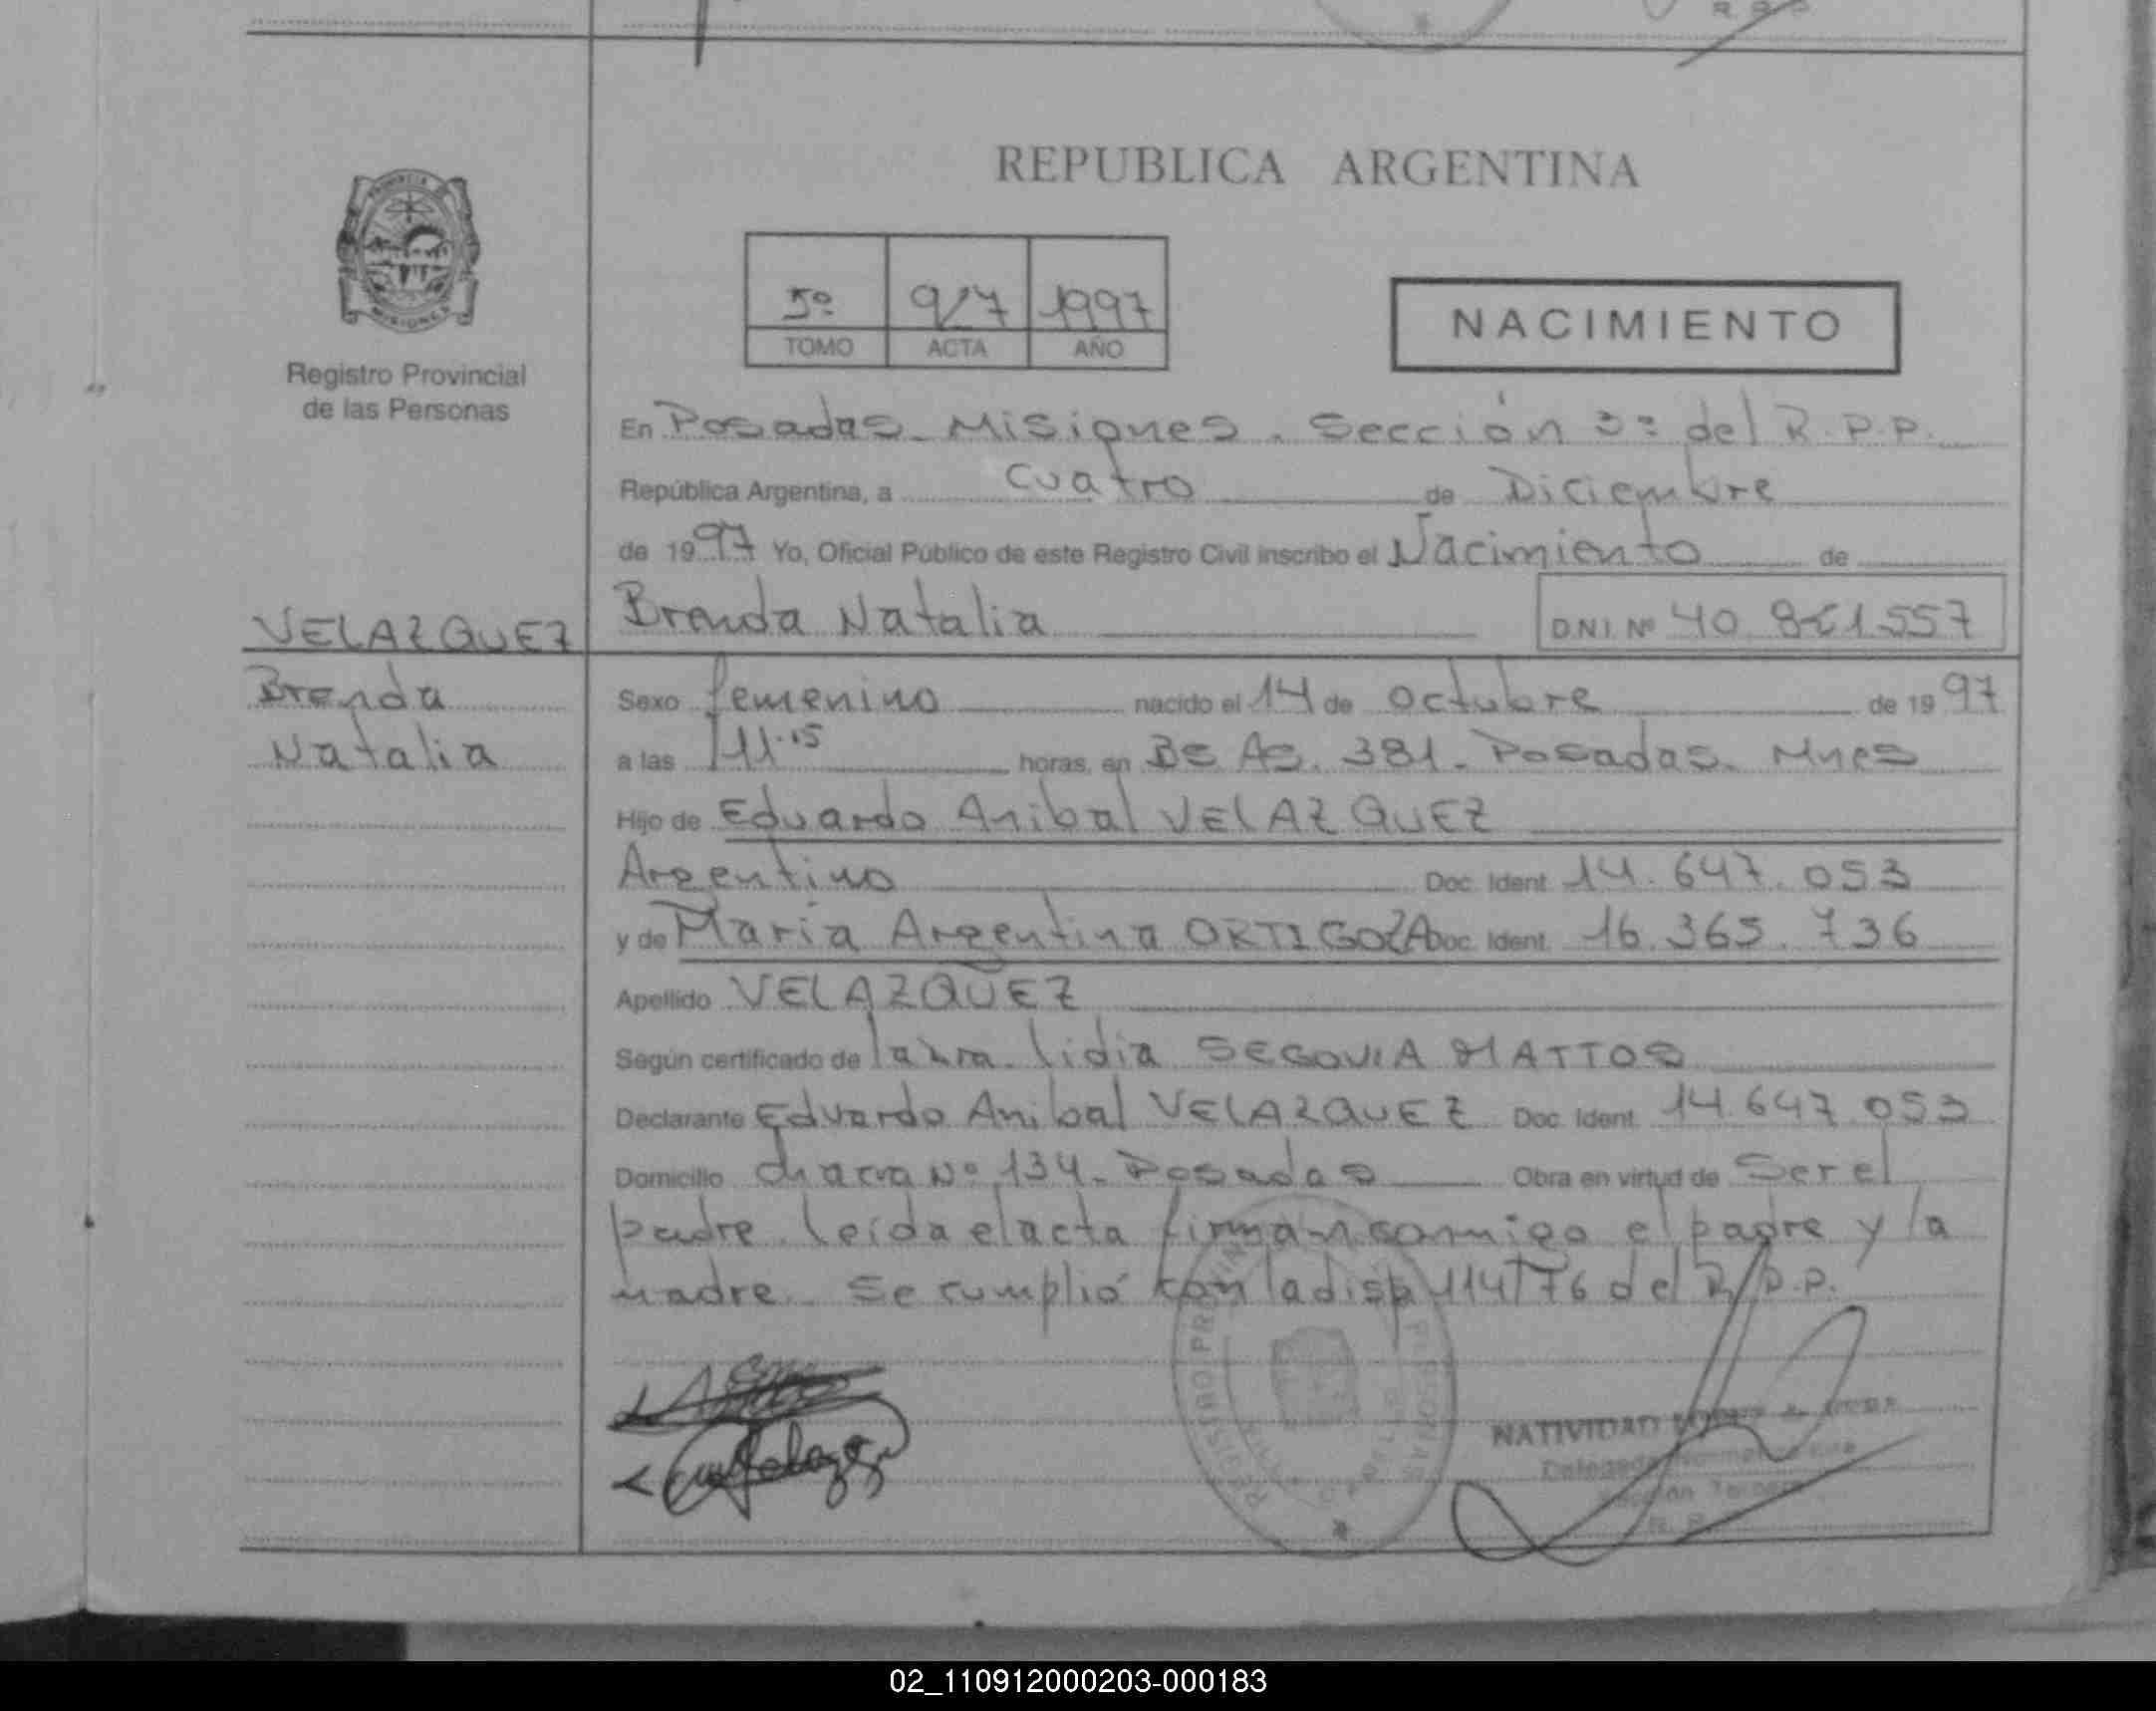 REPUBLICA ARGENTINA
5º 917 1997
TOMO ACTA AÑO
NACIMIENTO
Registro Provincial
de las Personas
En Posadas. Misiones. Sección 3ª del R.P.P.
República Argentina, a cuatro de Diciembre
de 1997 Yo, Oficial Público de este Registro Civil inscribo el Nacimiento de
VELAZQUEZ
Brenda
Natalia
Brenda Natalia
D.N.I. Nº 40.861.557
Sexo femenino nacido el 14 de octubre de 1997
a las 11.15 horas, en BS AS. 381. Posadas. Mnes
Hijo de Eduardo Anibal VELAZQUEZ
Argentino Doc. Ident. 14.647.053
y de Maria Argentina ORTIGOZA Doc. Ident. 16.365.736
Apellido VELAZQUEZ
Según certificado de la Lidia SEGOVIA MATTOS
Declarante Eduardo Anibal VELAZQUEZ Doc. Ident. 14.647.053
Domicilio chacra Nº 134. Posadas Obra en virtud de Ser el
padre. leída el acta firman conmigo el padre y la
madre. Se cumplió con la disp 114/76 del R.P.P.
REGISTRO
NATIVIDAD
02_110912000203-000183